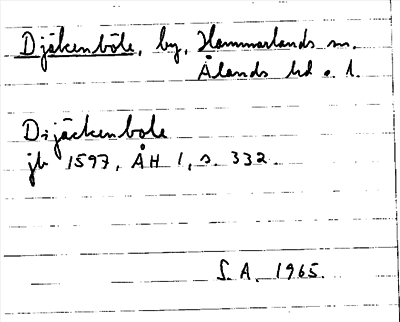 Djäkenböle, by, Hammarlands sn.
Ålands hd o. l.
Diäckenbole
jb 1597, ÅH 1, s. 332.
S. A. 1965.